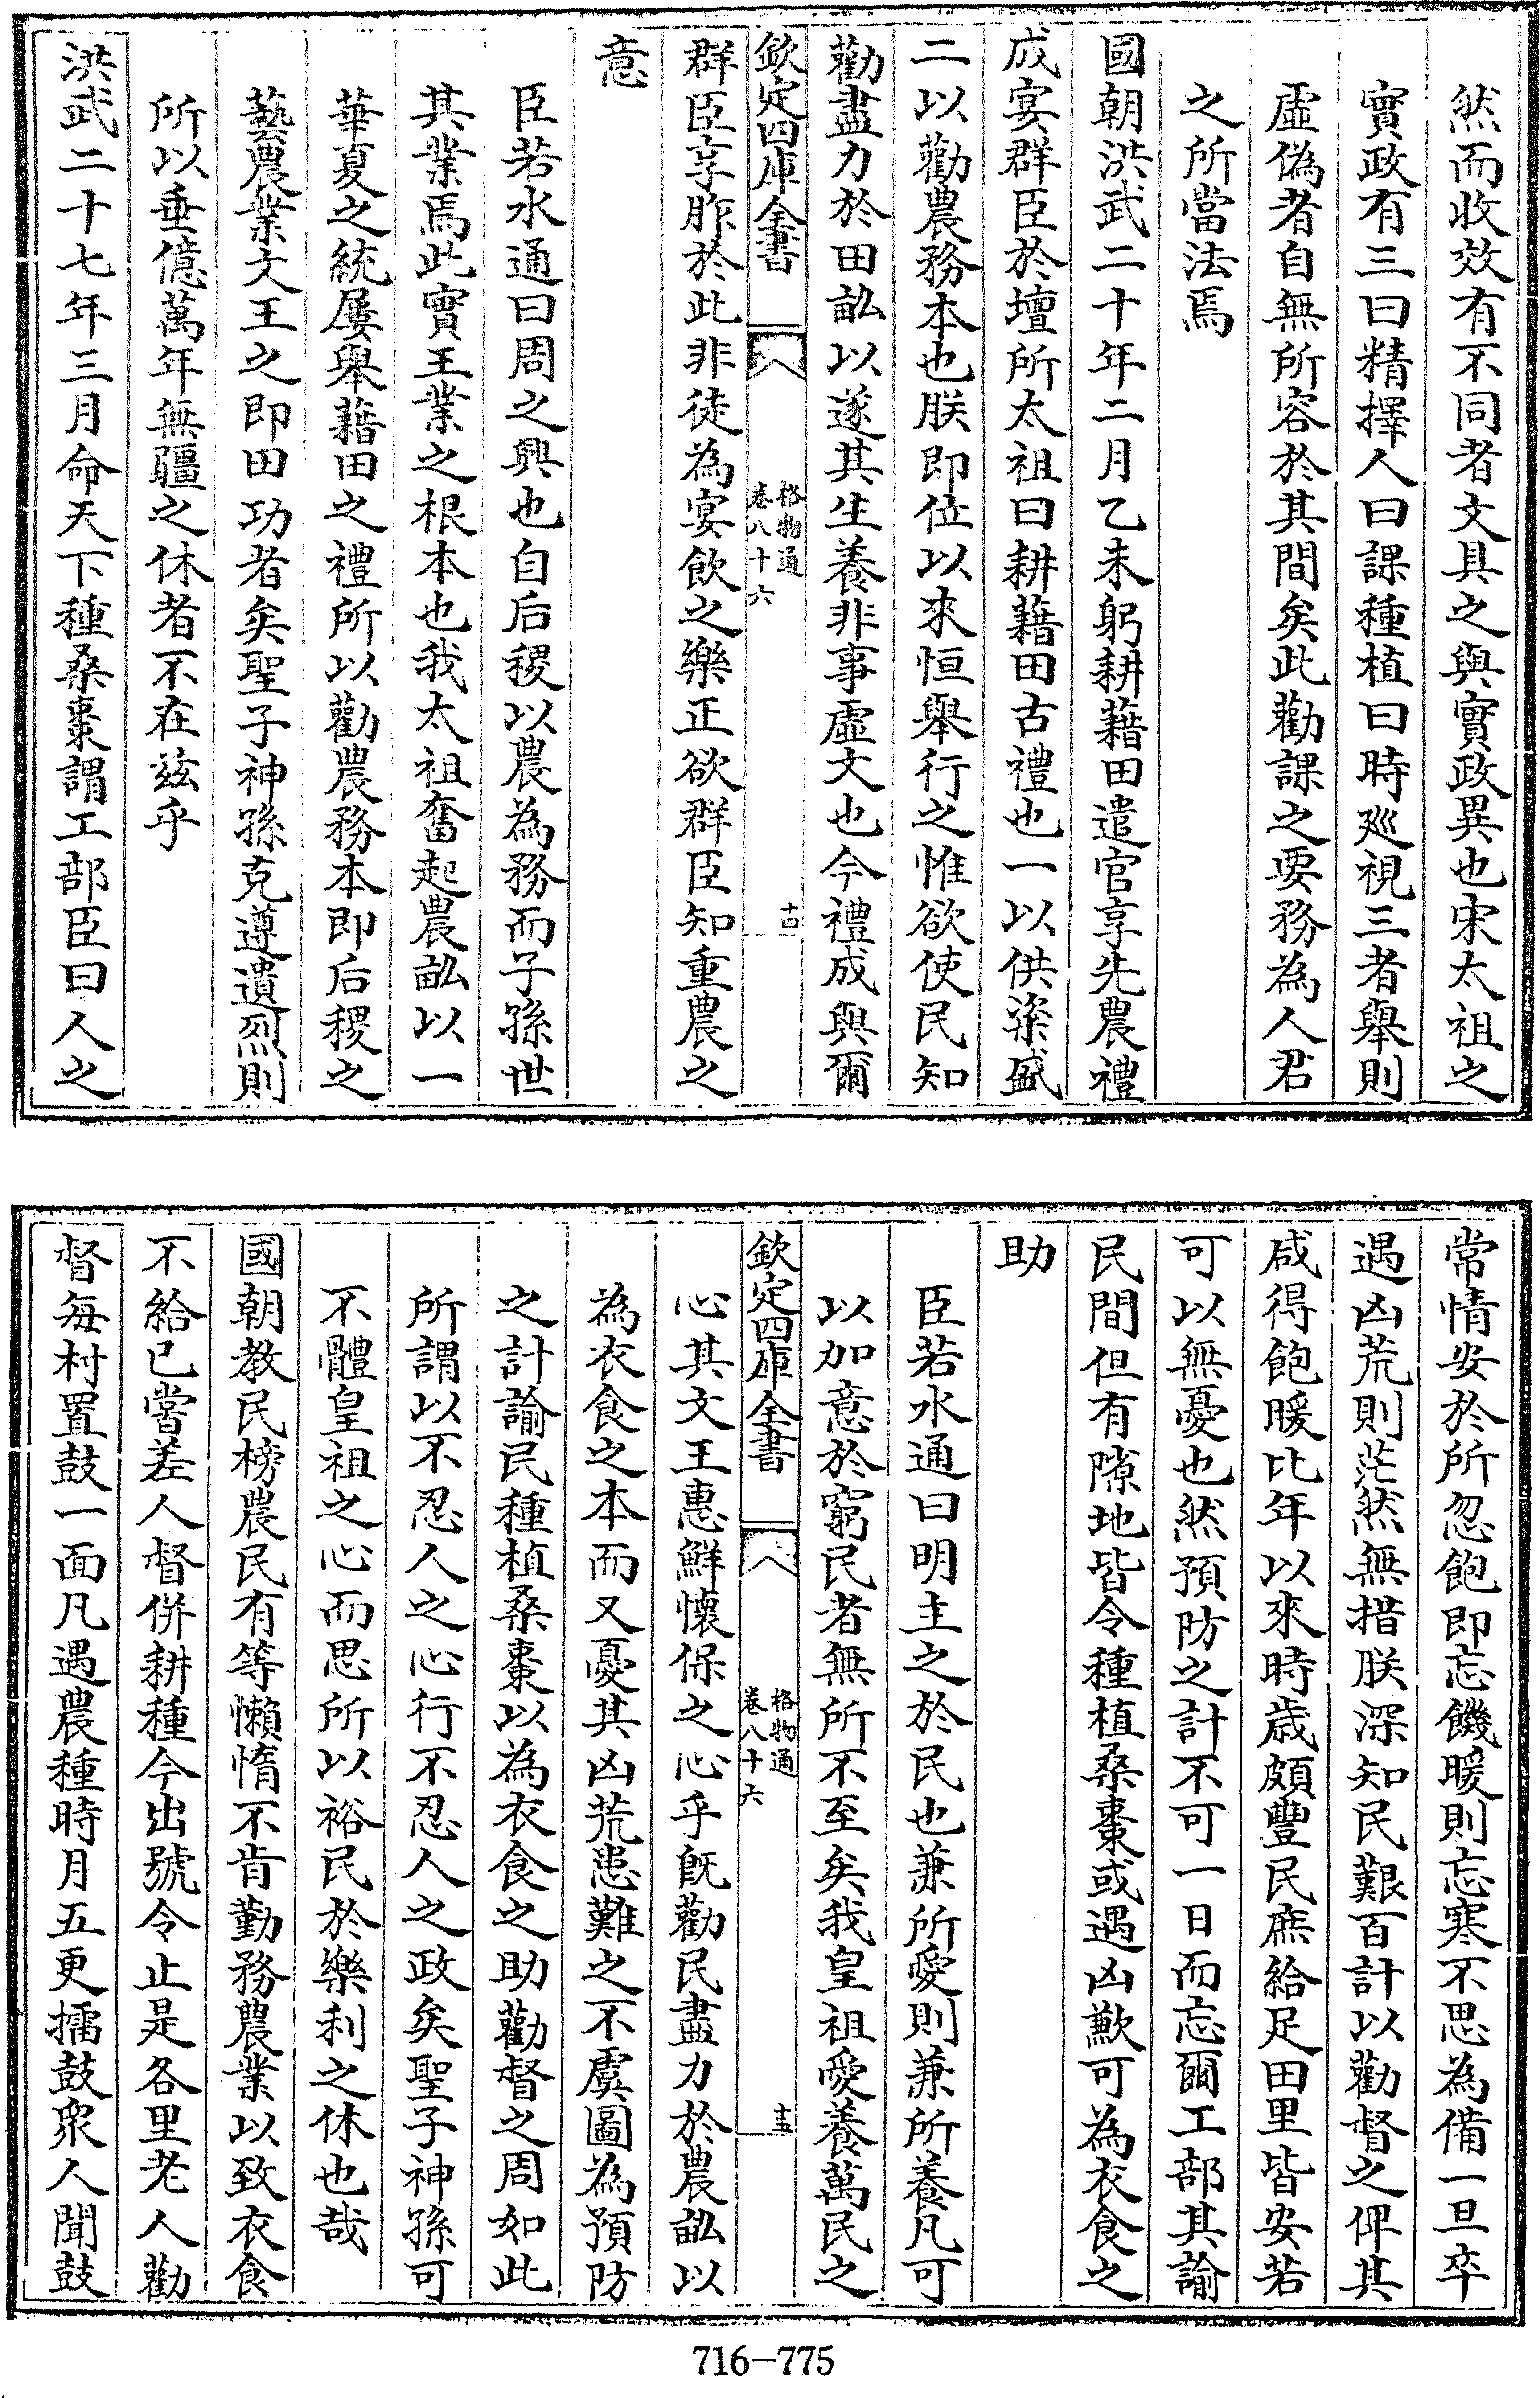 然而收效有不同者文具之與實政異也宋太祖之
實政有三曰精擇人曰課種植曰時廵視三者舉則
虛偽者自無所容於其間矣此勸課之要務為人君
之所當法焉
國朝洪武二十年二月乙未躬耕藉田遣官享先農禮
成宴群臣於壇所太祖曰耕藉田古禮也一以供粢盛
二以勸農務本也朕即位以來恒舉行之惟欲使民知
勸盡力於田畝以遂其生養非事虛文也今禮成與爾
欽定四庫全書
格物通
卷八十六
十四
群臣享胙於此非徒為宴飲之樂正欲群臣知重農之
意
臣若水通曰周之興也自后稷以農為務而子孫世
其業焉此實王業之根本也我太祖奮起農畝以一
華夏之統屢舉藉田之禮所以勸農務本即后稷之
藝農業文王之即田功者矣聖子神孫克遵遺烈則
所以垂億萬年無疆之休者不在兹乎
洪武二十七年三月命天下種桑棗謂工部臣曰人之
常情安於所忽飽即忘饑暖則忘寒不思為備一旦卒
遇凶荒則茫然無措朕深知民艱百計以勸督之俾其
咸得飽暖比年以來時歲頗豐民庶給足田里皆安若
可以無憂也然預防之計不可一日而忘爾工部其諭
民間但有隙地皆令種植桑棗或遇凶歉可為衣食之
助
臣若水通曰明主之於民也兼所愛則兼所養凡可
以加意於窮民者無所不至矣我皇祖愛養萬民之
欽定四庫全書
格物通
卷八十六
十五
心其文王惠鮮懷保之心乎既勸民盡力於農畝以
為衣食之本而又憂其凶荒患難之不虞圖為預防
之計諭民種植桑棗以為衣食之助勸督之周如此
所謂以不忍人之心行不忍人之政矣聖子神孫可
不體皇祖之心而思所以裕民於樂利之休也哉
國朝教民榜農民有等懶惰不肯勤務農業以致衣食
不給已嘗差人督併耕種今出號令止是各里老人勸
督每村置鼓一面凡遇農種時月五更擂鼓眾人聞鼓
716-775